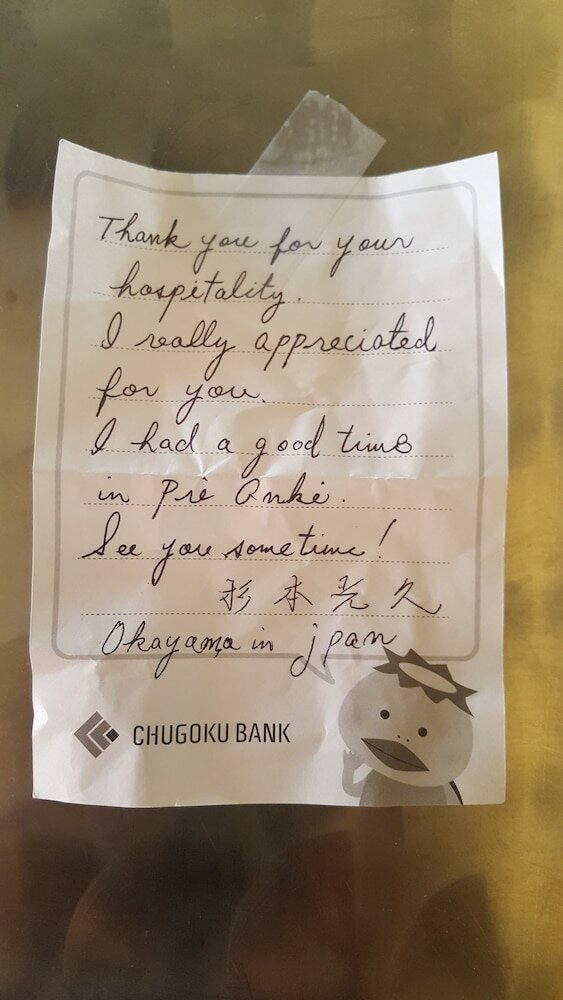 Thank you for your
hospitality.
I really appreciated
for you.
I had a good time
in Pie Anke.
See you sometime!
杉本光久
Okayama in jpan
CHUGOKU BANK